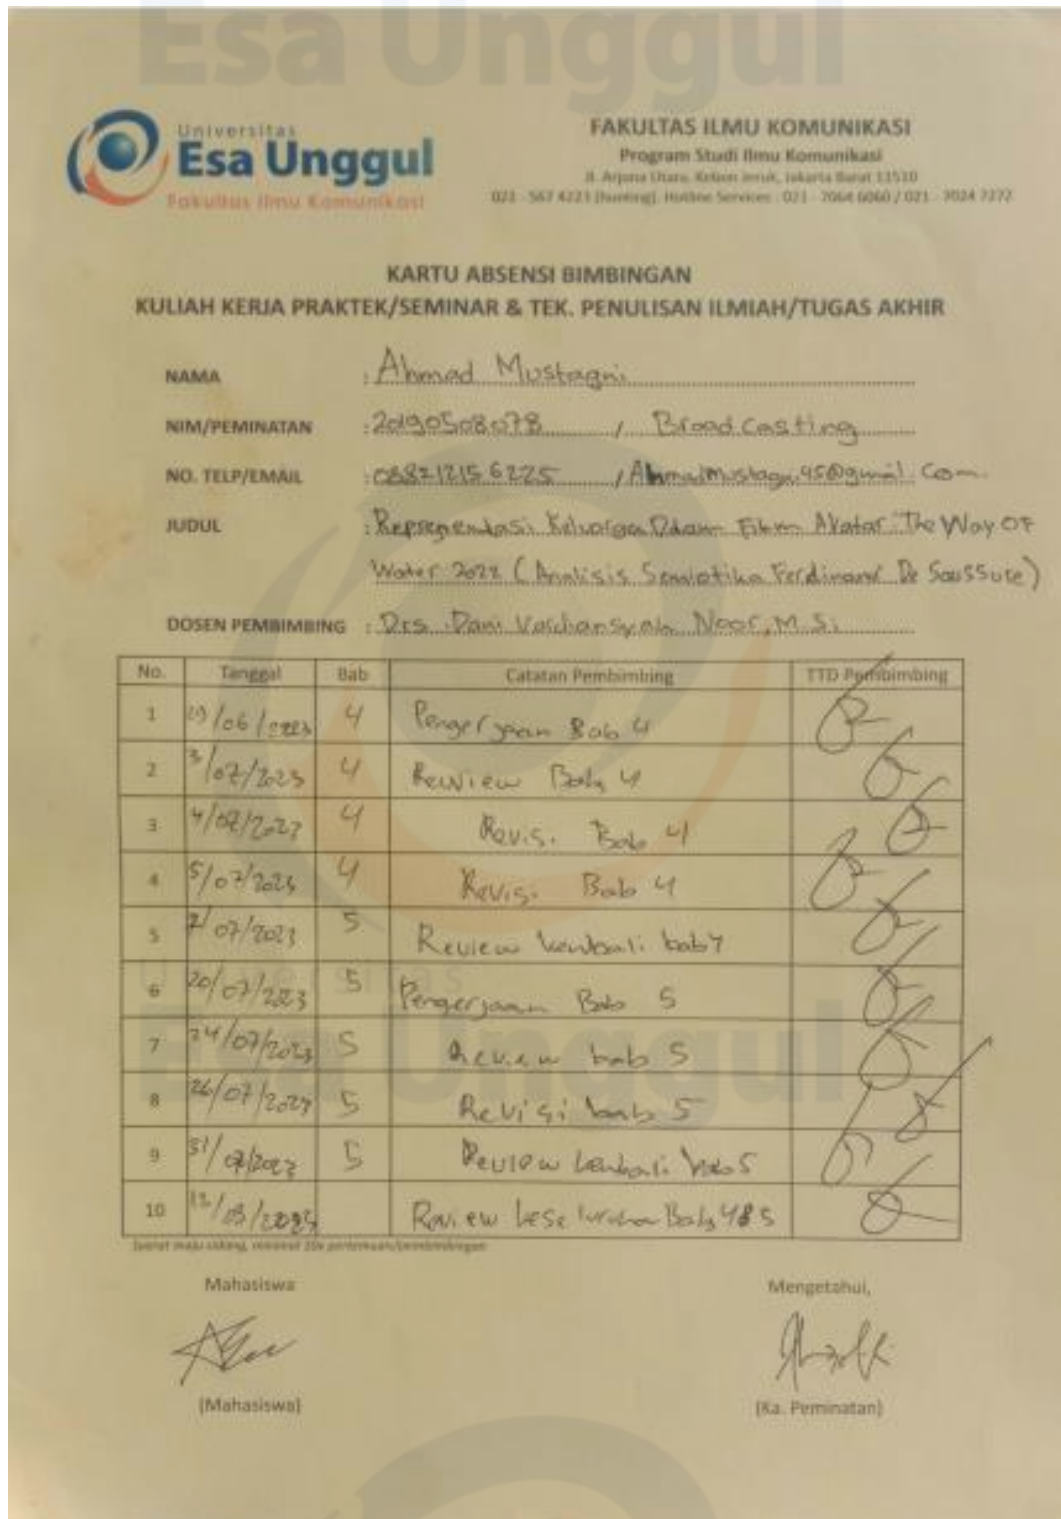 Esa Unggul
Universitas
Esa Unggul
Fakultas Ilmu Komunikasi
FAKULTAS ILMU KOMUNIKASI
Program Studi Ilmu Komunikasi
Jl. Arjuna Utara, Kebon Jeruk, Jakarta Barat 11510
021 - 567 4223 (hunting), Hotline Services : 021 - 7064 6060 / 021 - 7024 7272
KARTU ABSENSI BIMBINGAN
KULIAH KERJA PRAKTEK/SEMINAR & TEK. PENULISAN ILMIAH/TUGAS AKHIR
NAMA : Ahmad Mustaqni
NIM/PEMINATAN : 20190508078 / Broadcasting
NO. TELP/EMAIL : 088212156225 / AhmadMustaqni95@gmail.com
JUDUL : Representasi Keluarga Dalam Film Avatar: The Way OF
Water 2022 (Analisis Semiotika Ferdinand De Saussure)
DOSEN PEMBIMBING : Drs. Dani Vardiansyah Noor, M.Si
No. Tanggal Bab Catatan Pembimbing TTD Pembimbing
1 /06/2023 4 Pengerjaan Bab 4
2 3/07/2023 4 Review Bab 4
3 4/07/2023 4 Revisi Bab 4
4 5/07/2023 4 Revisi Bab 4
5 /07/2023 5 Review kembali bab 4
6 20/07/2023 5 Pengerjaan Bab 5
7 24/07/2023 5 Review bab 5
8 26/07/2023 5 Revisi bab 5
9 31/07/2023 5 Review kembali bab 5
10 12/08/2023 Review keseluruhan Bab 4&5
Syarat maju sidang, minimal 10x pertemuan/pembimbingan
Universitas
Esa Unggul
Mahasiswa Mengetahui,
(Mahasiswa) (Ka. Peminatan)